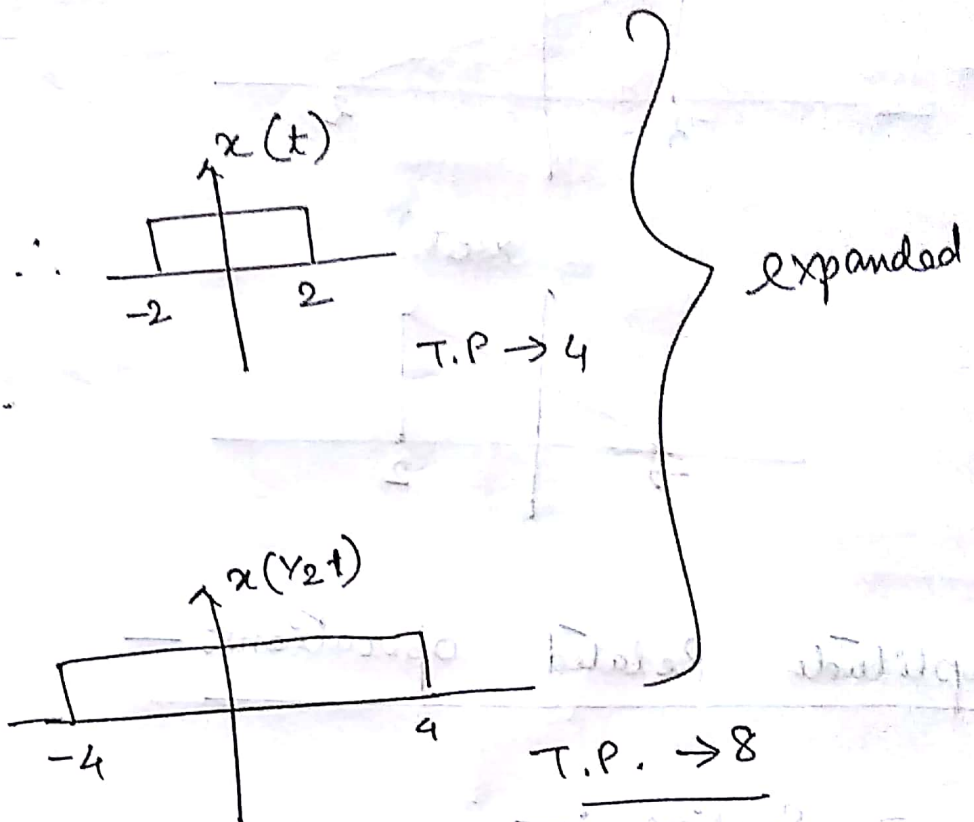 x(t)
∴
-2 2
T.P → 4
expanded
x(1/2t)
-4 4
T.P. → 8